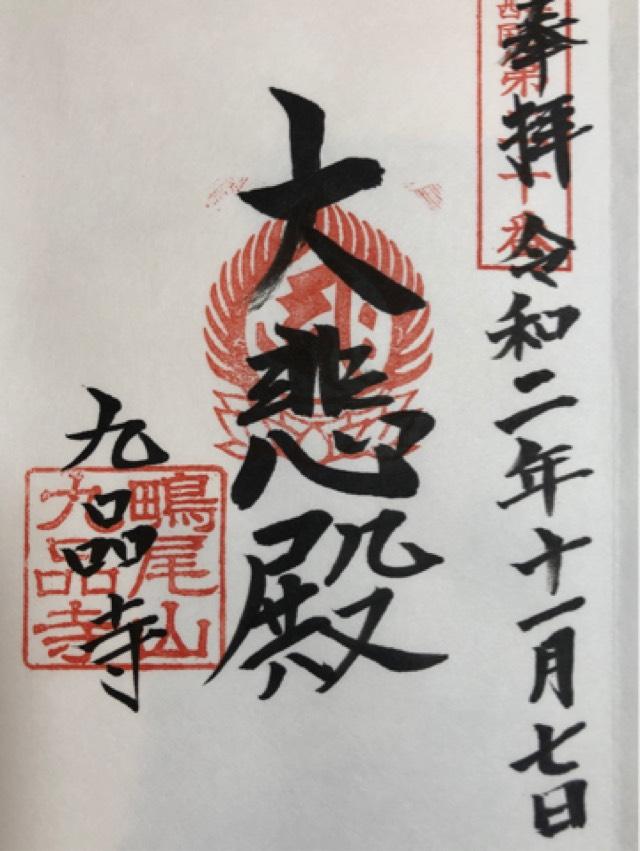 奉拝 令和二年十一月七日
大悲殿
九品寺
鴫尾山
九品寺